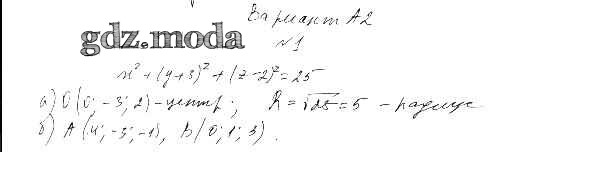 Вариант А2
gdz.moda
№1
x² + (y+3)² + (z-2)² = 25
а) O(0; -3; 2) - центр; R = √25 = 5 - радиус
б) A(4; -3; -1), B(0; 1; 3).